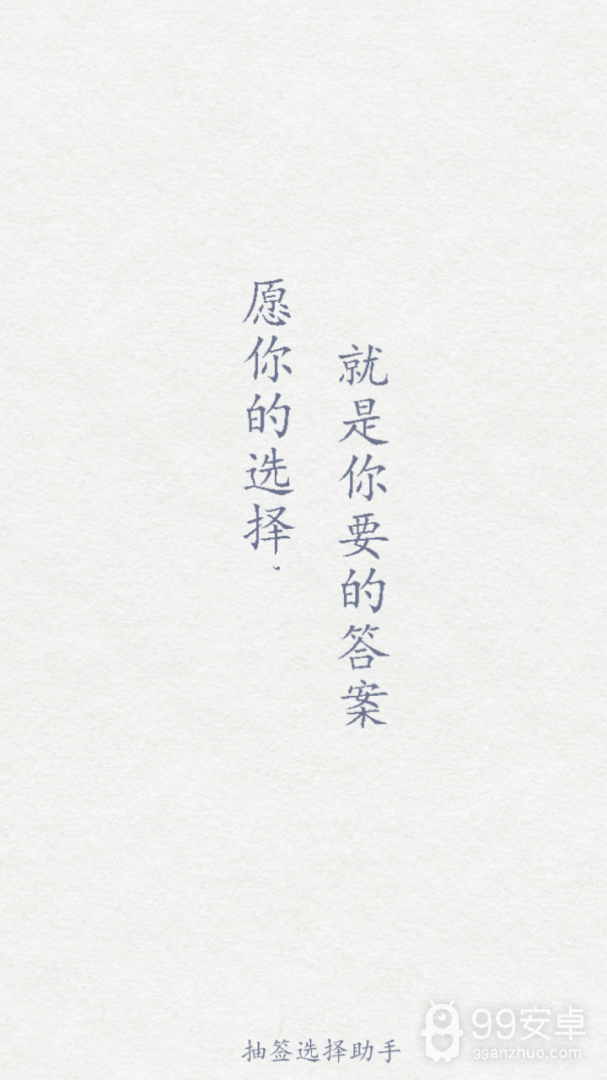 愿你的选择.
就是你要的答案
抽签选择助手
99安卓
99anzhuo.com